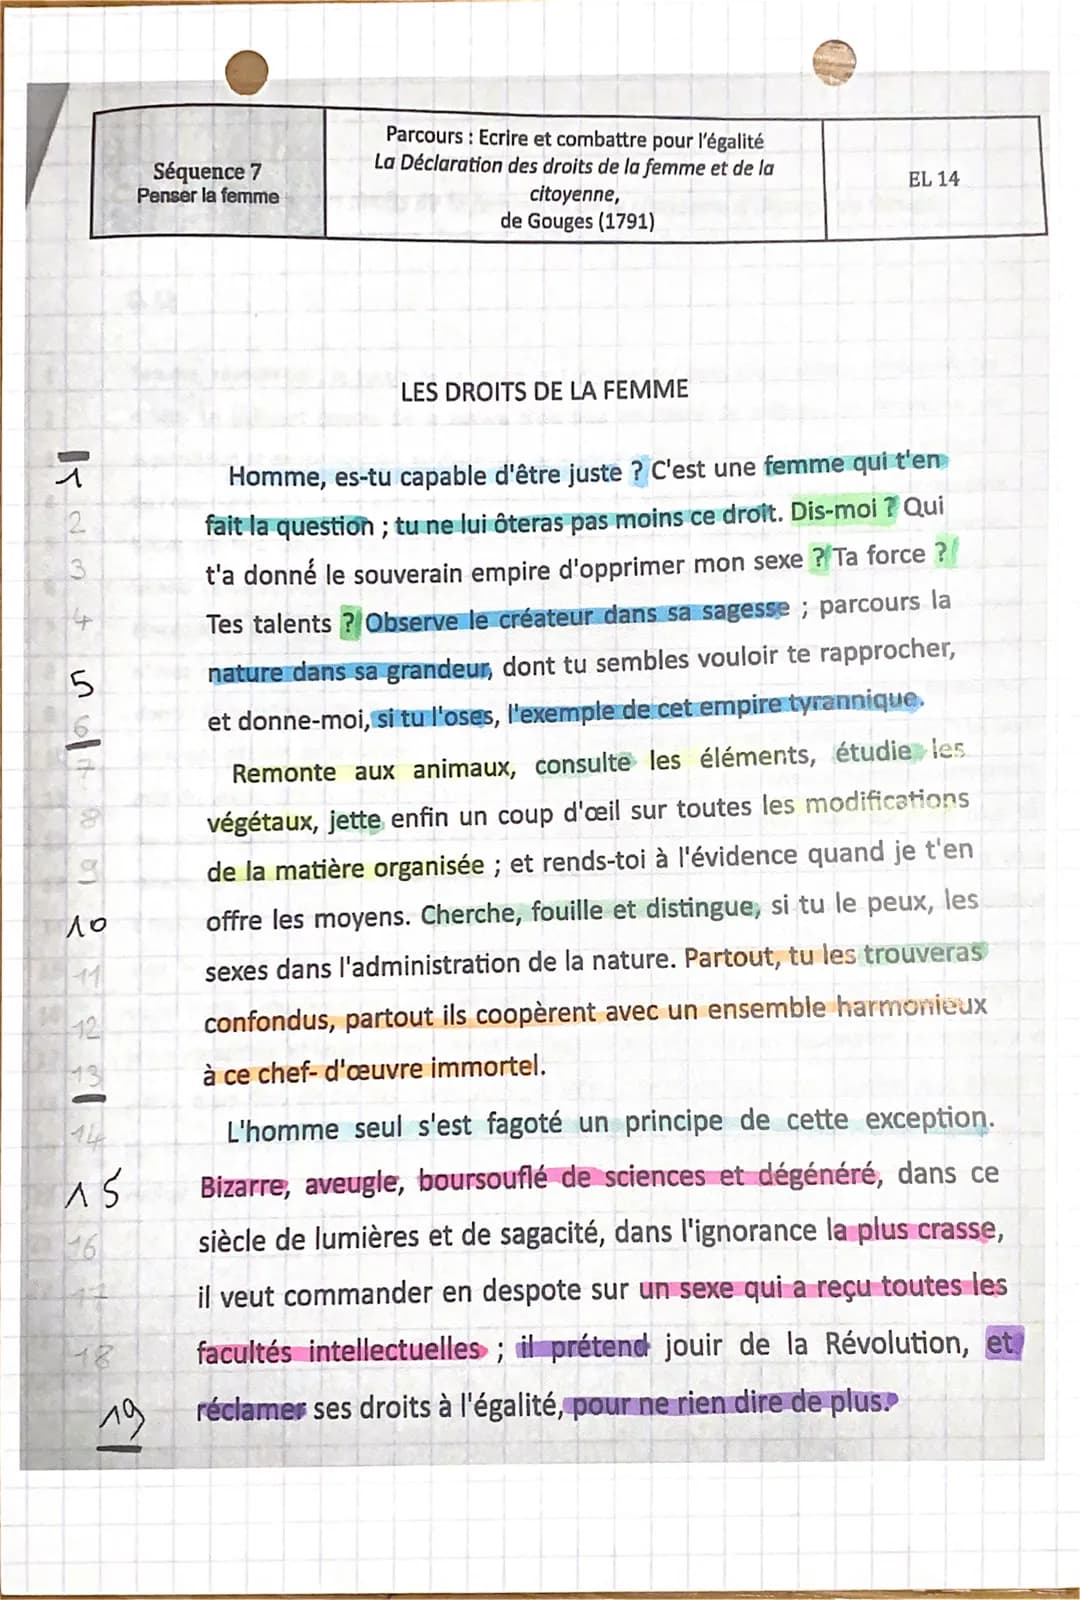 Séquence 7
Penser la femme
Parcours : Ecrire et combattre pour l'égalité
La Déclaration des droits de la femme et de la
citoyenne,
de Gouges (1791)
EL 14
LES DROITS DE LA FEMME
1 Homme, es-tu capable d'être juste ? C'est une femme qui t'en
2 fait la question ; tu ne lui ôteras pas moins ce droit. Dis-moi ? Qui
3 t'a donné le souverain empire d'opprimer mon sexe ? Ta force ?
4 Tes talents ? Observe le créateur dans sa sagesse ; parcours la
5 nature dans sa grandeur, dont tu sembles vouloir te rapprocher,
6 et donne-moi, si tu l'oses, l'exemple de cet empire tyrannique.
7 Remonte aux animaux, consulte les éléments, étudie les
8 végétaux, jette enfin un coup d'œil sur toutes les modifications
9 de la matière organisée ; et rends-toi à l'évidence quand je t'en
10 offre les moyens. Cherche, fouille et distingue, si tu le peux, les
11 sexes dans l'administration de la nature. Partout, tu les trouveras
12 confondus, partout ils coopèrent avec un ensemble harmonieux
13 à ce chef- d'œuvre immortel.
14 L'homme seul s'est fagoté un principe de cette exception.
15 Bizarre, aveugle, boursouflé de sciences et dégénéré, dans ce
16 siècle de lumières et de sagacité, dans l'ignorance la plus crasse,
17 il veut commander en despote sur un sexe qui a reçu toutes les
18 facultés intellectuelles ; il prétend jouir de la Révolution, et
19 réclamer ses droits à l'égalité, pour ne rien dire de plus.